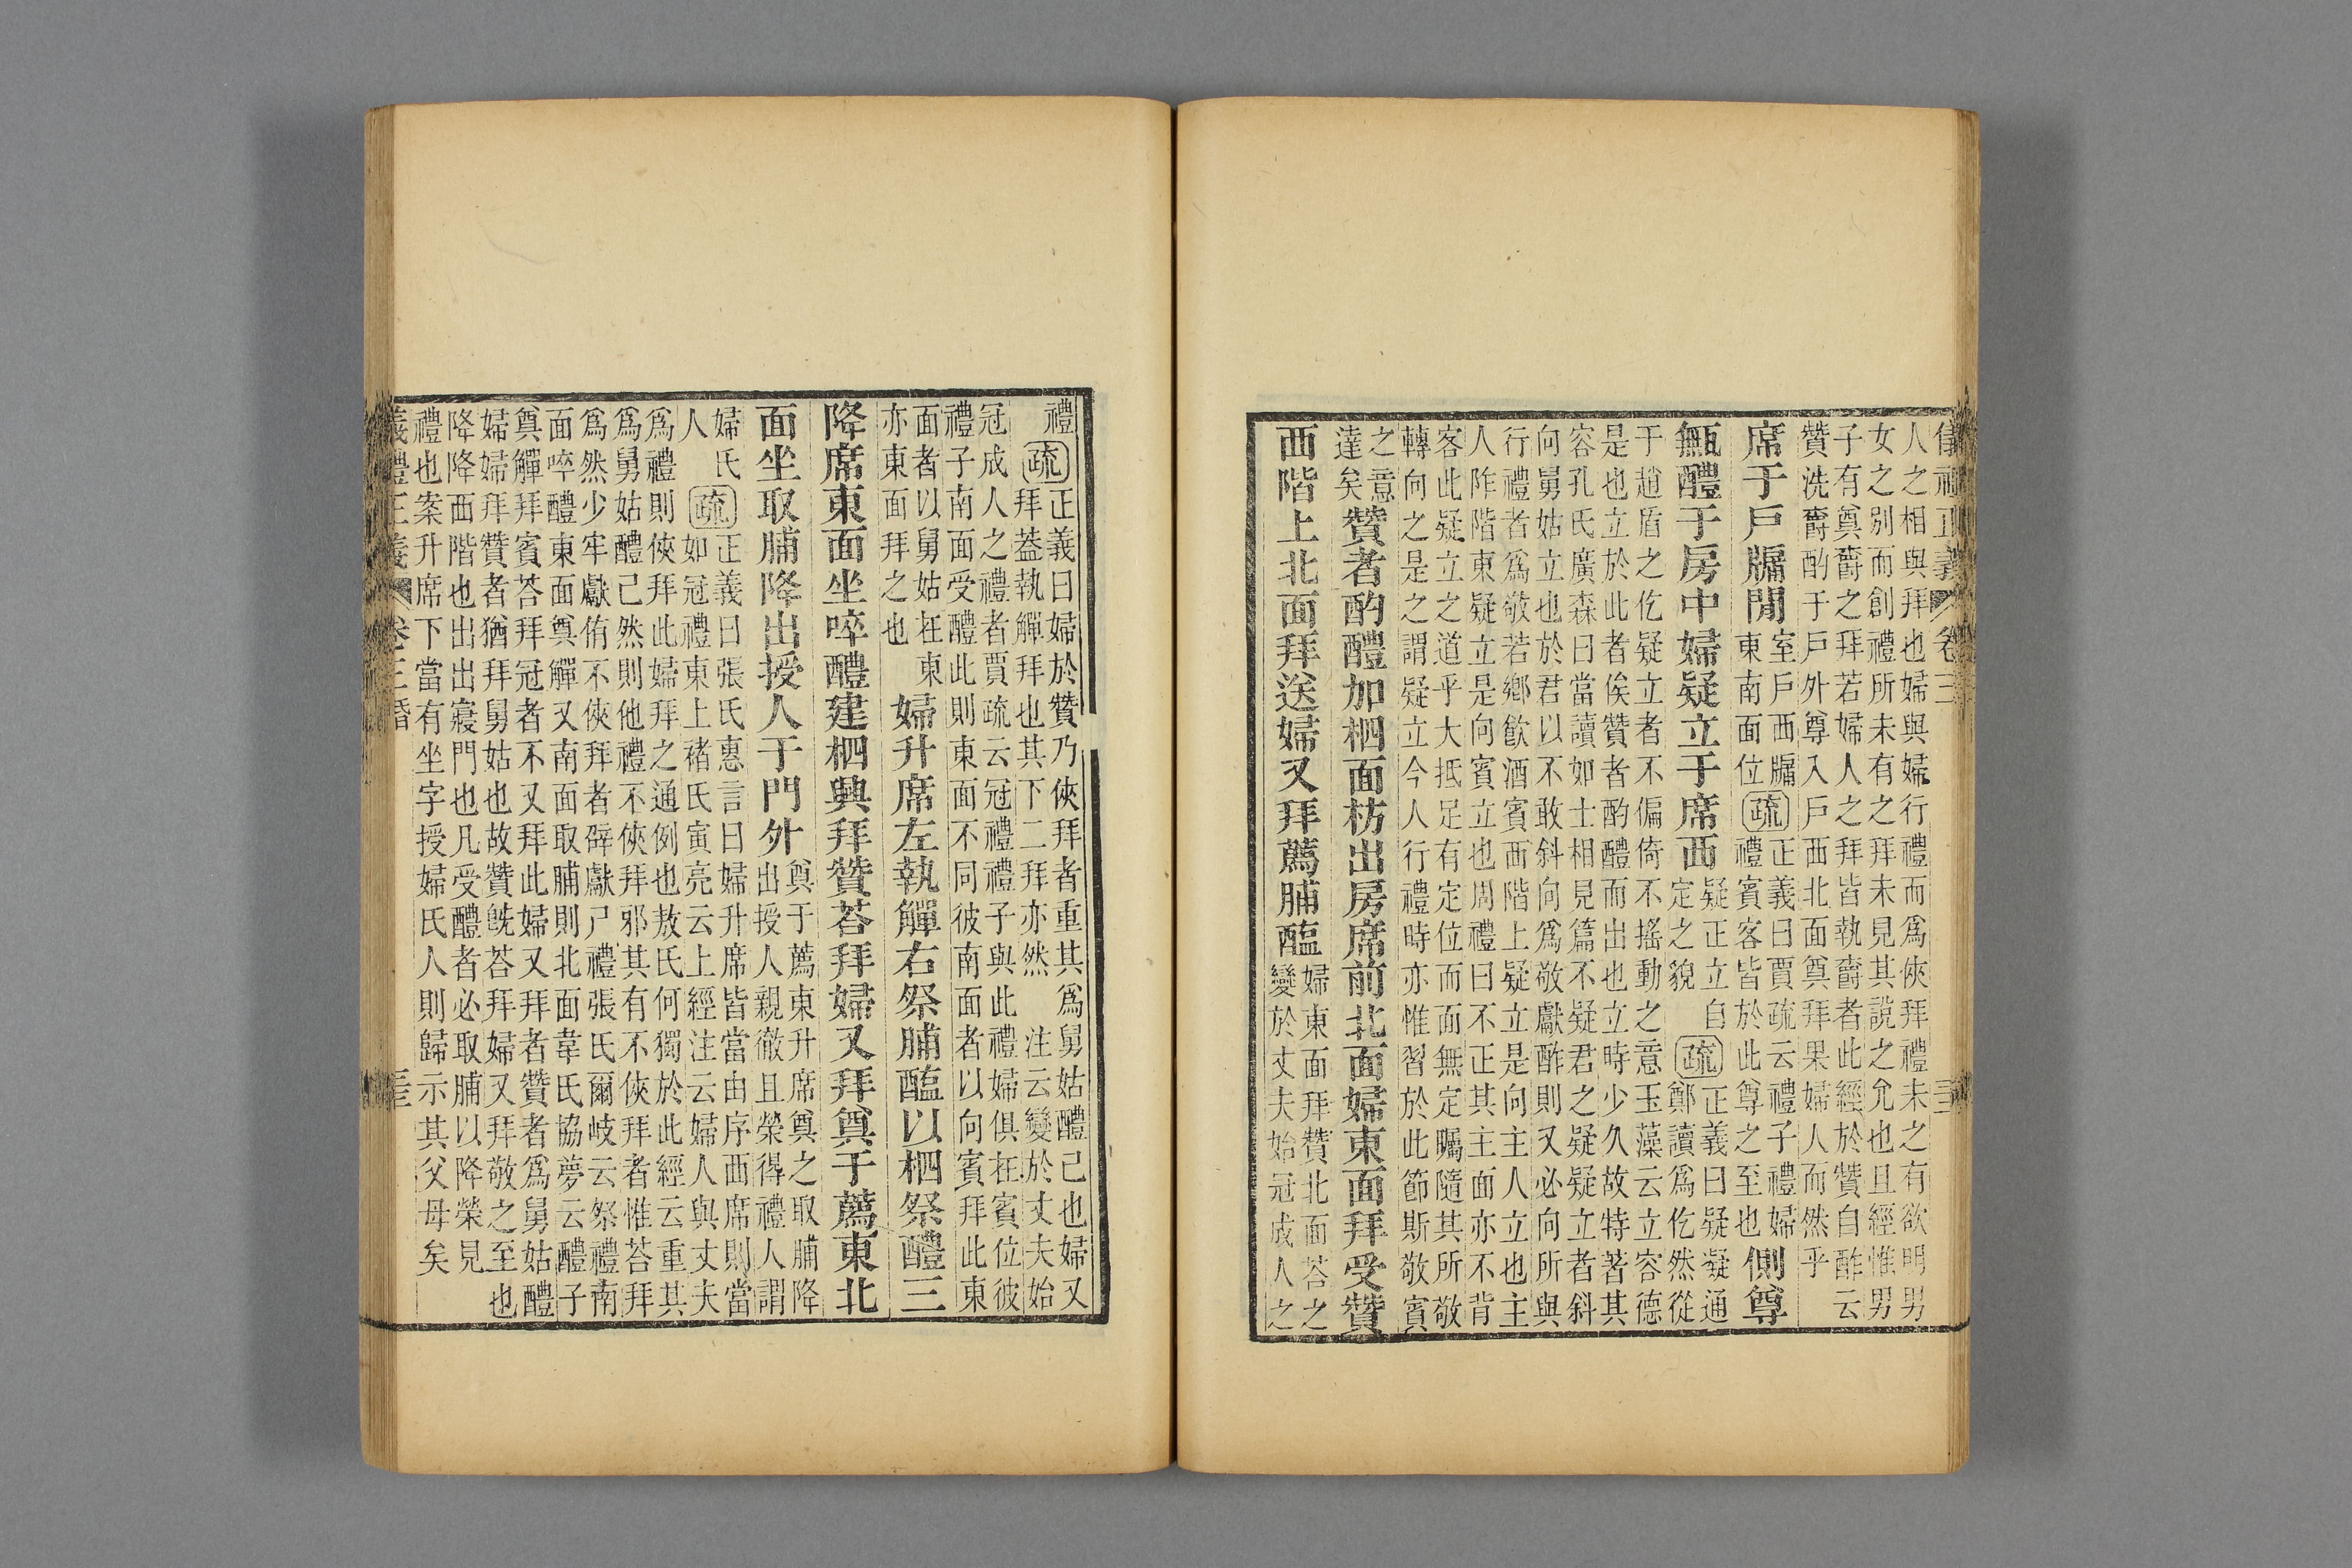 儀禮正義 卷三
人之相與拜也婦與婦行禮而爲俠拜禮未之有欲明男
女之別而創禮所未有之拜未見其說之允也且經惟男
子有奠爵之拜若婦人之拜皆執爵者此經於贊自酢云
贊洗爵酌于戶外尊入戶西北面奠拜果婦人而然乎
席于戶牖閒
室戶西牖
東南面位
疏
正義曰賈疏云禮子禮婦
禮賓客皆於此尊之至也
側尊
甒醴于房中婦疑立于席西
疑正立自
定之貌
疏
正義曰疑疑通
鄭讀爲仡然從
于趙盾之仡疑立者不偏倚不搖動之意玉藻云立容德
是也立於此者俟贊者酌醴而出也立時少久故特著其
容孔氏廣森曰當讀如士相見篇不疑君之疑疑立者斜
向舅姑立也於君以不敢斜向爲敬獻酢則又必向所與
行禮者爲敬若鄉飮酒賓西階上疑立是向主人立也主
人阼階東疑立是向賓立也周禮曰不正其主面亦不背
客此疑立之道乎大抵足有定位而面無定矚隨其所敬
轉向之是之謂疑立今人行禮時亦惟習於此節斯敬賓
之意
達矣
贊者酌醴加柶面枋出房席前北面婦東面拜受贊
西階上北面拜送婦又拜薦脯醢
婦東面拜贊北面荅之
變於丈夫始冠成人之
禮
疏
正義曰婦於贊乃俠拜者重其爲舅姑醴己也婦又
拜葢執觶拜也其下二拜亦然 注云變於丈夫始
冠成人之禮者賈疏云冠禮禮子與此禮婦俱在賓位彼
禮子南面受醴此則東面不同彼南面者以向賓拜此東
面者以舅姑在東
亦東面拜之也
婦升席左執觶右祭脯醢以柶祭醴三
降席東面坐啐醴建柶興拜贊荅拜婦又拜奠于薦東北
面坐取脯降出授人于門外
奠于薦東升席奠之取脯降
出授人親徹且榮得禮人謂
婦氏
人
疏
正義曰張氏惠言曰婦升席皆當由序西席則當
如冠禮東上褚氏寅亮云上經注云婦人與丈夫
爲禮則俠拜此婦拜之通例也敖氏何獨於此經云重其
爲舅姑醴己然則他禮不俠拜邪其有不俠拜者惟荅拜
爲然少牢獻侑不俠拜者辟獻尸禮張氏爾岐云祭禮南
面啐醴東面奠觶又南面取脯則北面韋氏協夢云醴子
奠觶拜賓荅拜冠者不又拜此婦又拜者贊者爲舅姑醴
婦婦拜贊者猶拜舅姑也故贊旣荅拜婦又拜敬之至也
降降西階也出出寢門也凡受醴者必取脯以降榮見
禮也案升席下當有坐字授婦氏人則歸示其父母矣
義禮正義 卷三 昏